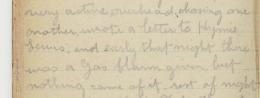 very active overhead, chasing one
another, wrote a letter to Hymie
Lewis, and early that night there
was a Gas Alarm given but
nothing came of it, rest of night